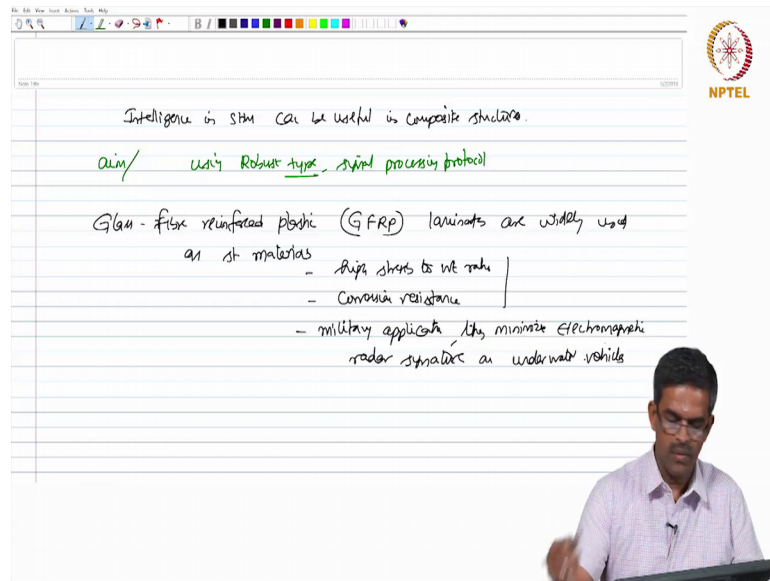 File Edit View Insert Actions Tools Help
B I
Note Title
5/2/2018
NPTEL
Intelligence in SHM can be useful in composite structure.
aim/ using Robust type, signal processing protocol
Glass-fibre reinforced plastic (GFRP) laminates are widely used
as st materials
- high stress to wt ratio
- Corrosion resistance
- military application, they minimize Electromagnetic
radar signature as underwater vehicles